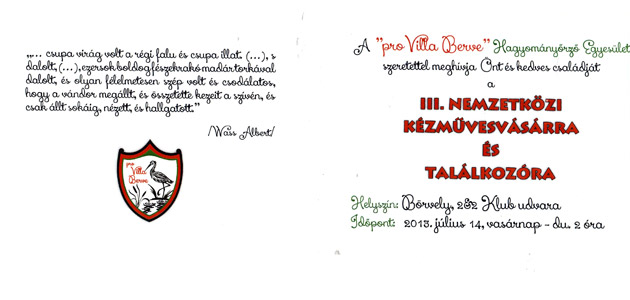 „... csupa virág volt a régi falu és csupa illat. (...), s
dalolt, (...), ezer sok boldog fészekrakó madár torkával
dalolt, és olyan félelmetesen szép volt és csodálatos,
hogy a vándor megállt, és összetette kezeit a szívén, és
csak állt sokáig, nézett, és hallgatott.”
/Wass Albert/
pro
Villa
Berve
A "pro Villa Berve" Hagyományőrző Egyesület
szeretettel meghívja Önt és kedves családját
a
III. NEMZETKÖZI
KÉZMŰVESVÁSÁRRA
ÉS
TALÁLKOZÓRA
Helyszín: Börvely, 2&2 Klub udvara
Időpont: 2013. július 14, vasárnap - du. 2 óra